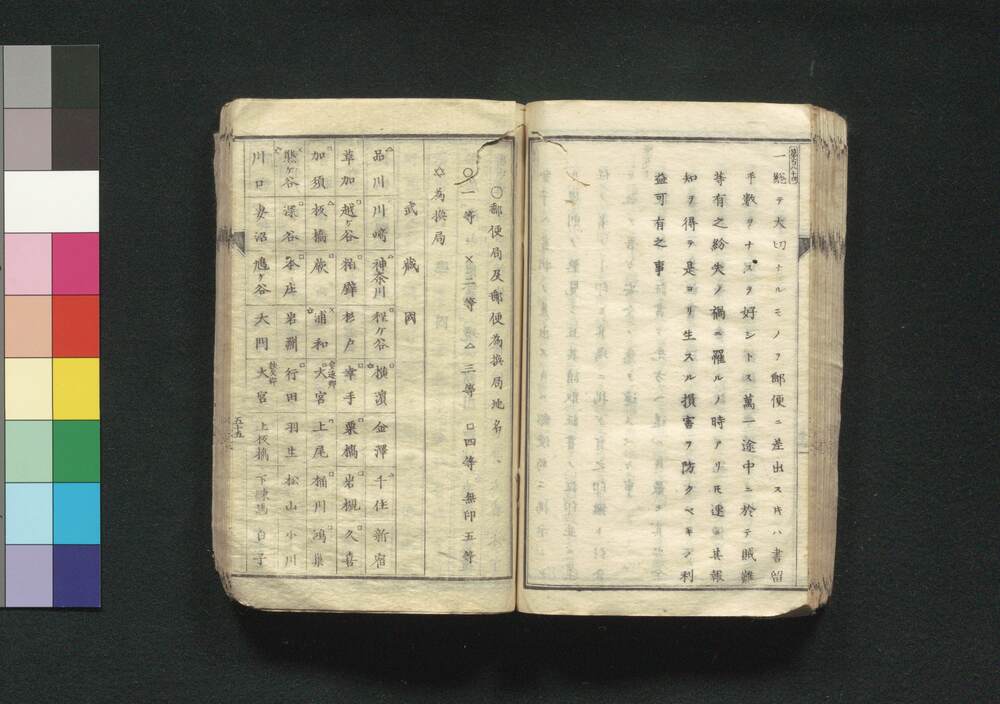 一總テ大切ナルモノヲ郵便ニ差出ス片ハ書留
手數ヲナスヲ好シトス萬一途中ニ於テ賊難
等有之紛失ノ禍ニ罹ルノ時アリ𪜈速ニ其報
知ヲ得テ是ヨリ生スル損害ヲ防クベキヿ利
益可有之事
○郵便局及郵便為換局地名
○一等 ×二等 △三等 □四等 無印五等
✡為換局
武藏國
品川 川崎 神奈川 程ケ谷 横濱 金澤 千住 新宿
草加 越ケ谷 粕壁 杉戸 幸手 栗橋 岩槻 久喜
加須 板橋 蕨 浦和 大宮 上尾 桶川 鴻巣
熊ケ谷 深谷 本庄 岩 行田 羽生 松山 小川
川口 妻沼 鳩ケ谷 大門 秩父郷大宮 上板橋 下練馬 白子
五十五